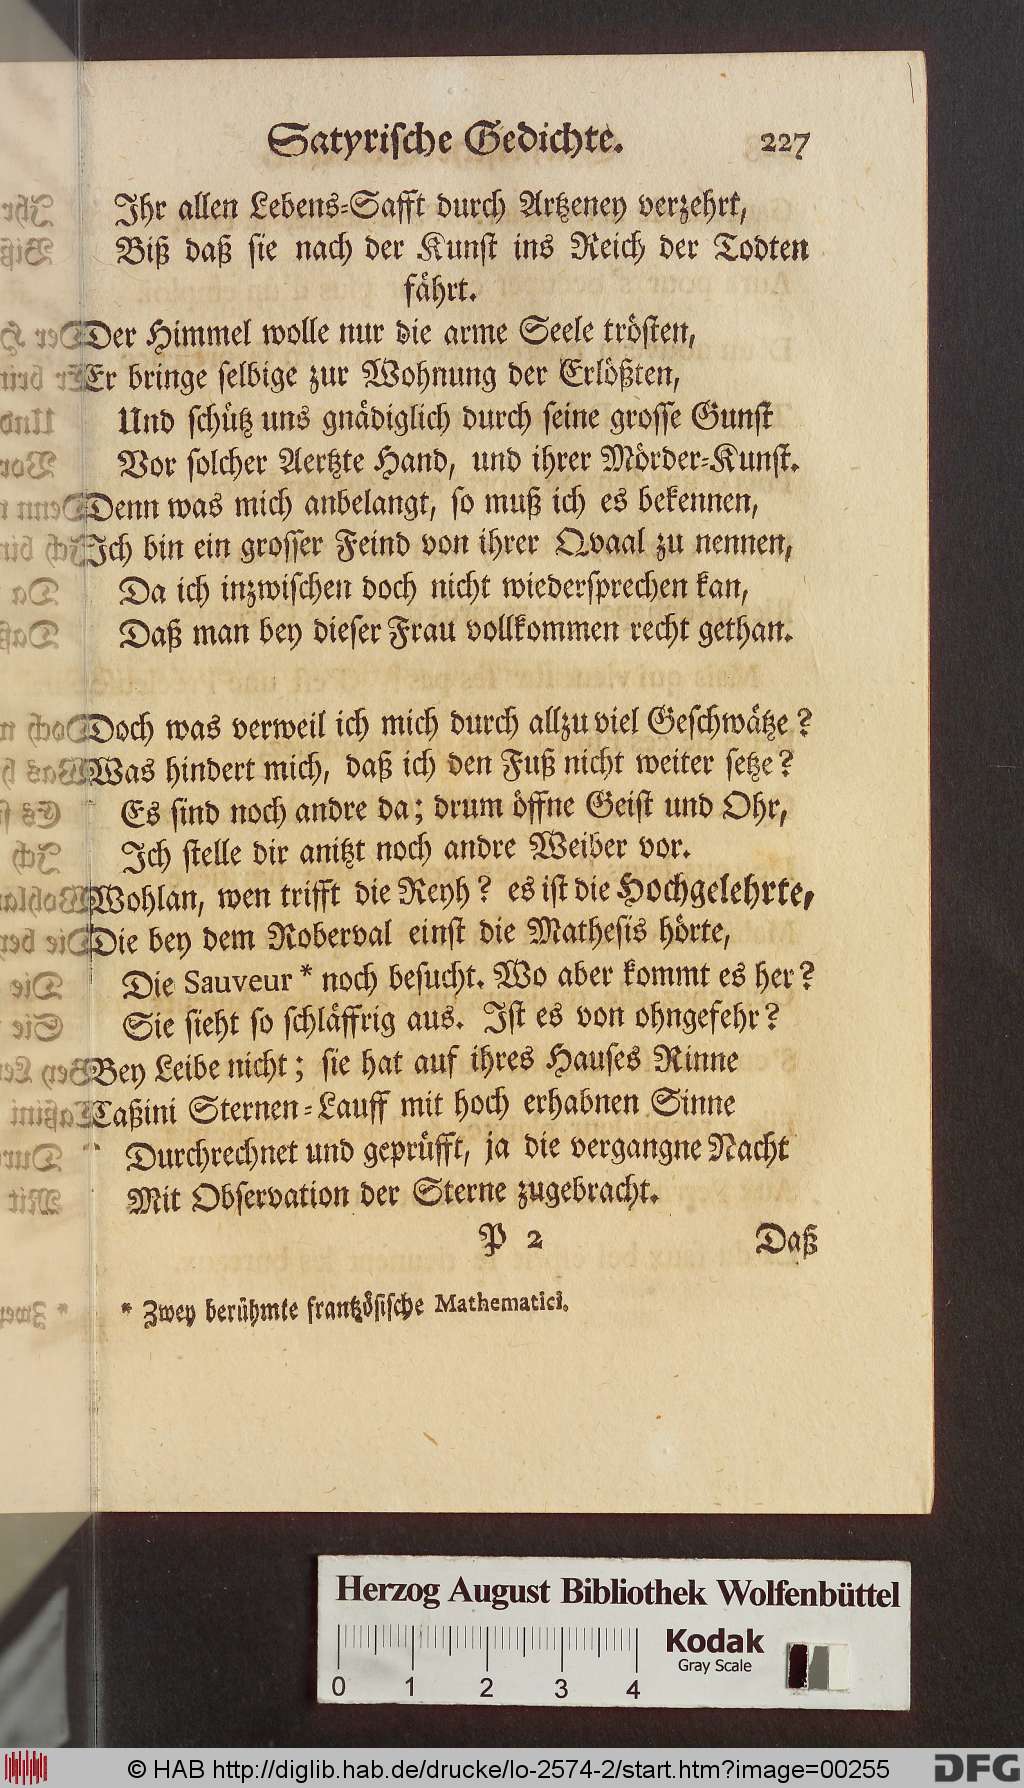 Satyrische Gedichte. 227
Ihr allen Lebens-Safft durch Artzeney verzehrt,
Biß daß sie nach der Kunst ins Reich der Todten
fährt.
Der Himmel wolle nur die arme Seele trösten,
Er bringe selbige zur Wohnung der Erlößten,
Und schütz uns gnädiglich durch seine grosse Gunst
Vor solcher Aertzte Hand, und ihrer Mörder-Kunst.
Denn was mich anbelangt, so muß ich es bekennen,
Ich bin ein grosser Feind von ihrer Qvaal zu nennen,
Da ich inzwischen doch nicht wiedersprechen kan,
Daß man bey dieser Frau vollkommen recht gethan.
Doch was verweil ich mich durch allzu viel Geschwätze?
Was hindert mich, daß ich den Fuß nicht weiter setze?
Es sind noch andre da; drum öffne Geist und Ohr,
Ich stelle dir anitzt noch andre Weiber vor.
Wohlan, wen trifft die Reyh? es ist die Hochgelehrte,
Die bey dem Roberval einst die Mathesis hörte,
Die Sauveur * noch besucht. Wo aber kommt es her?
Sie sieht so schläffrig aus. Ist es von ohngefehr?
Bey Leibe nicht; sie hat auf ihres Hauses Rinne
Caßini Sternen-Lauff mit hoch erhabnen Sinne
Durchrechnet und geprüfft, ja die vergangne Nacht
Mit Observation der Sterne zugebracht.
P 2 Daß
* Zwey berühmte frantzösische Mathematici.
Herzog August Bibliothek Wolfenbüttel
Kodak
Gray Scale
0 1 2 3 4
© HAB http://diglib.hab.de/drucke/lo-2574-2/start.htm?image=00255
DFG